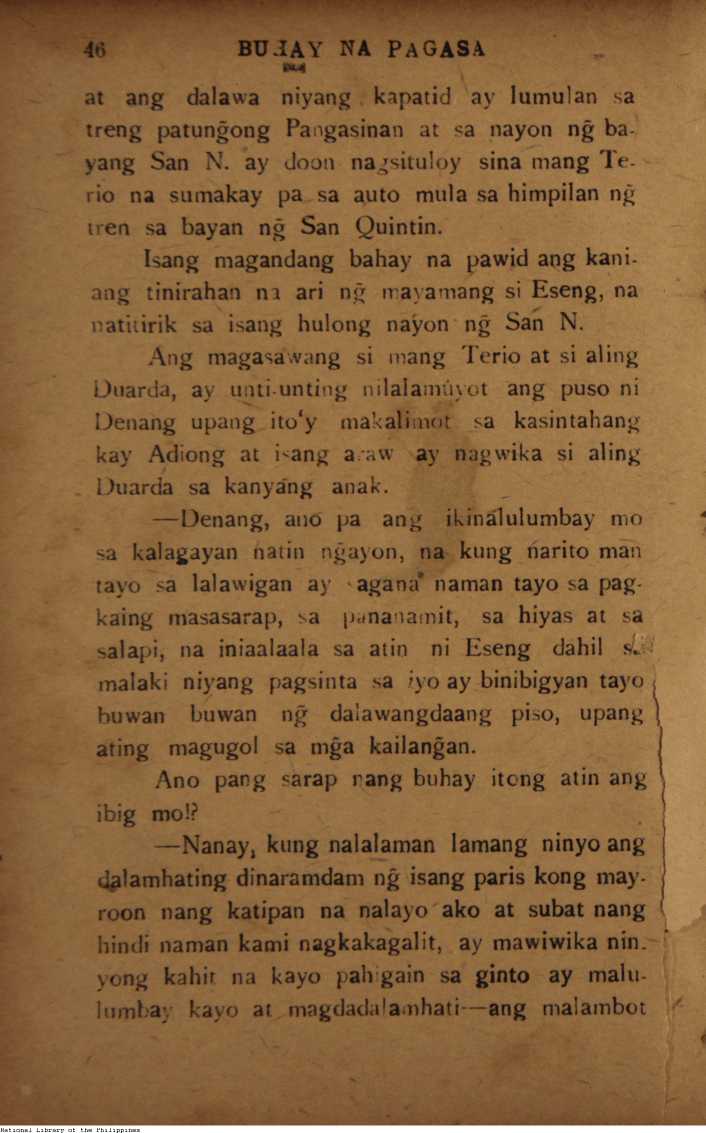 46 BUHAY NA PAGASA
at ang dalawa niyang kapatid ay lumulan sa
treng patung̃ong Pangasinan at sa nayon ng̃ ba-
yang San N. ay doon nagsituloy sina mang Te-
rio na sumakay pa sa auto mula sa himpilan ng̃
tren sa bayan ng̃ San Quintin.
Isang magandang bahay na pawid ang kani-
ang tinirahan na ari ng̃ mayamang si Eseng, na
natitirik sa isang hulong nayon ng̃ San N.
Ang magasawang si mang Terio at si aling
Duarda, ay unti-unting nilalamúyot ang puso ni
Denang upang ito'y makalimot sa kasintahang
kay Adiong at isang araw ay nagwika si aling
Duarda sa kanyang anak.
—Denang, ano pa ang ikinalulumbay mo
sa kalagayan natin ng̃ayon, na kung narito man
tayo sa lalawigan ay sagana naman tayo sa pag-
kaing masasarap, sa pananamit, sa hiyas at sa
salapi, na iniaalaala sa atin ni Eseng dahil sa
malaki niyang pagsinta sa iyo ay binibigyan tayo
buwan buwan ng̃ dalawangdaang piso, upang
ating magugol sa mg̃a kailang̃an.
Ano pang sarap nang buhay itong atin ang
ibig mo!?
—Nanay, kung nalalaman lamang ninyo ang
dalamhating dinaramdam ng̃ isang paris kong may-
roon nang katipan na nalayo ako at subat nang
hindi naman kami nagkakagalit, ay mawiwika nin-
yong kahit na kayo pahigain sa ginto ay malu-
lumbay kayo at magdadalamhati—ang malambot
National Library of the Philippines